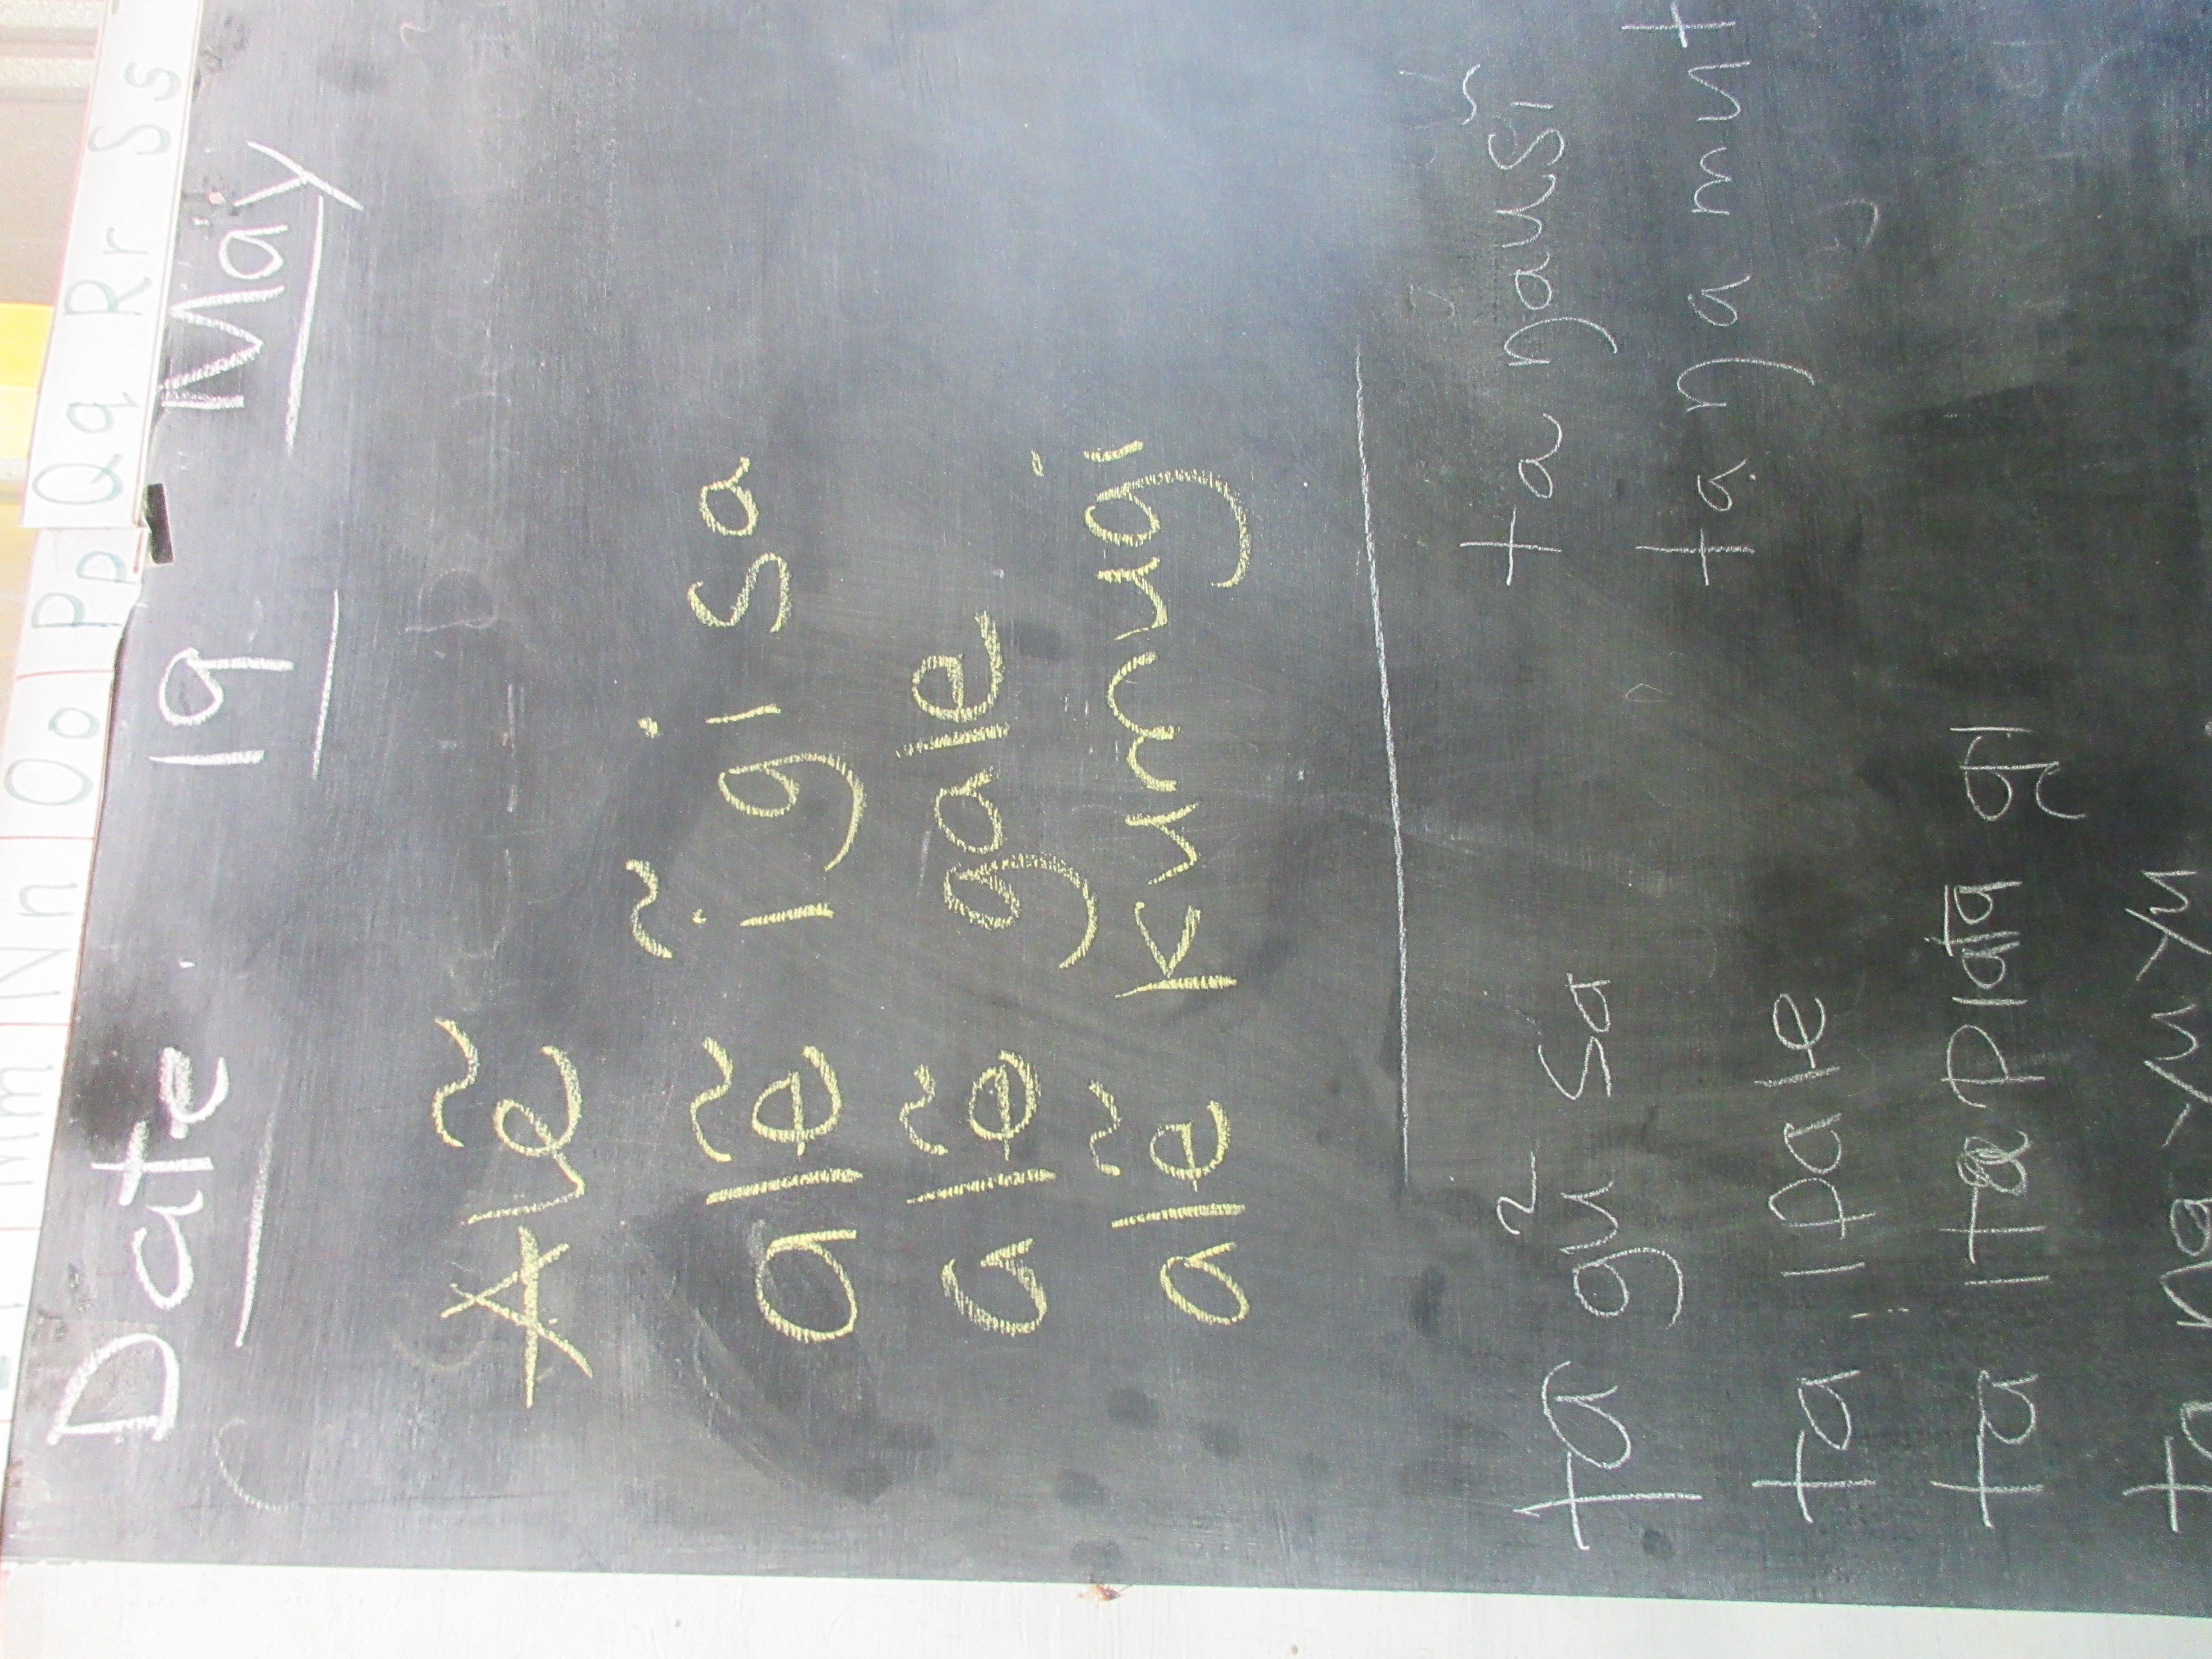 Mm Nn Oo Pp Qq Rr Ss
Date 19 May
Alẽ
alẽ ĩgisa
alẽ gale
alẽ kumugi
ta gũ sa
ta ŋausĩ
ta ipale
ta ŋa mut
ta
ta na yuyu